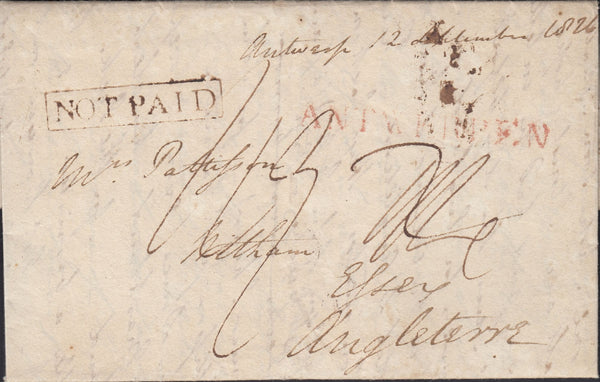 Antwerp 12 December 1826
NOT PAID
ANTWERPEN
Mrs Pattisson
Witham
Essex
Angleterre